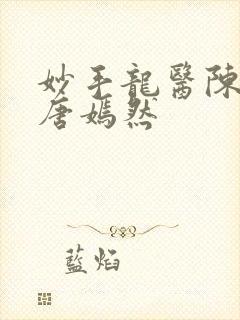 妙手龍醫陳
唐嫣然
藍焰